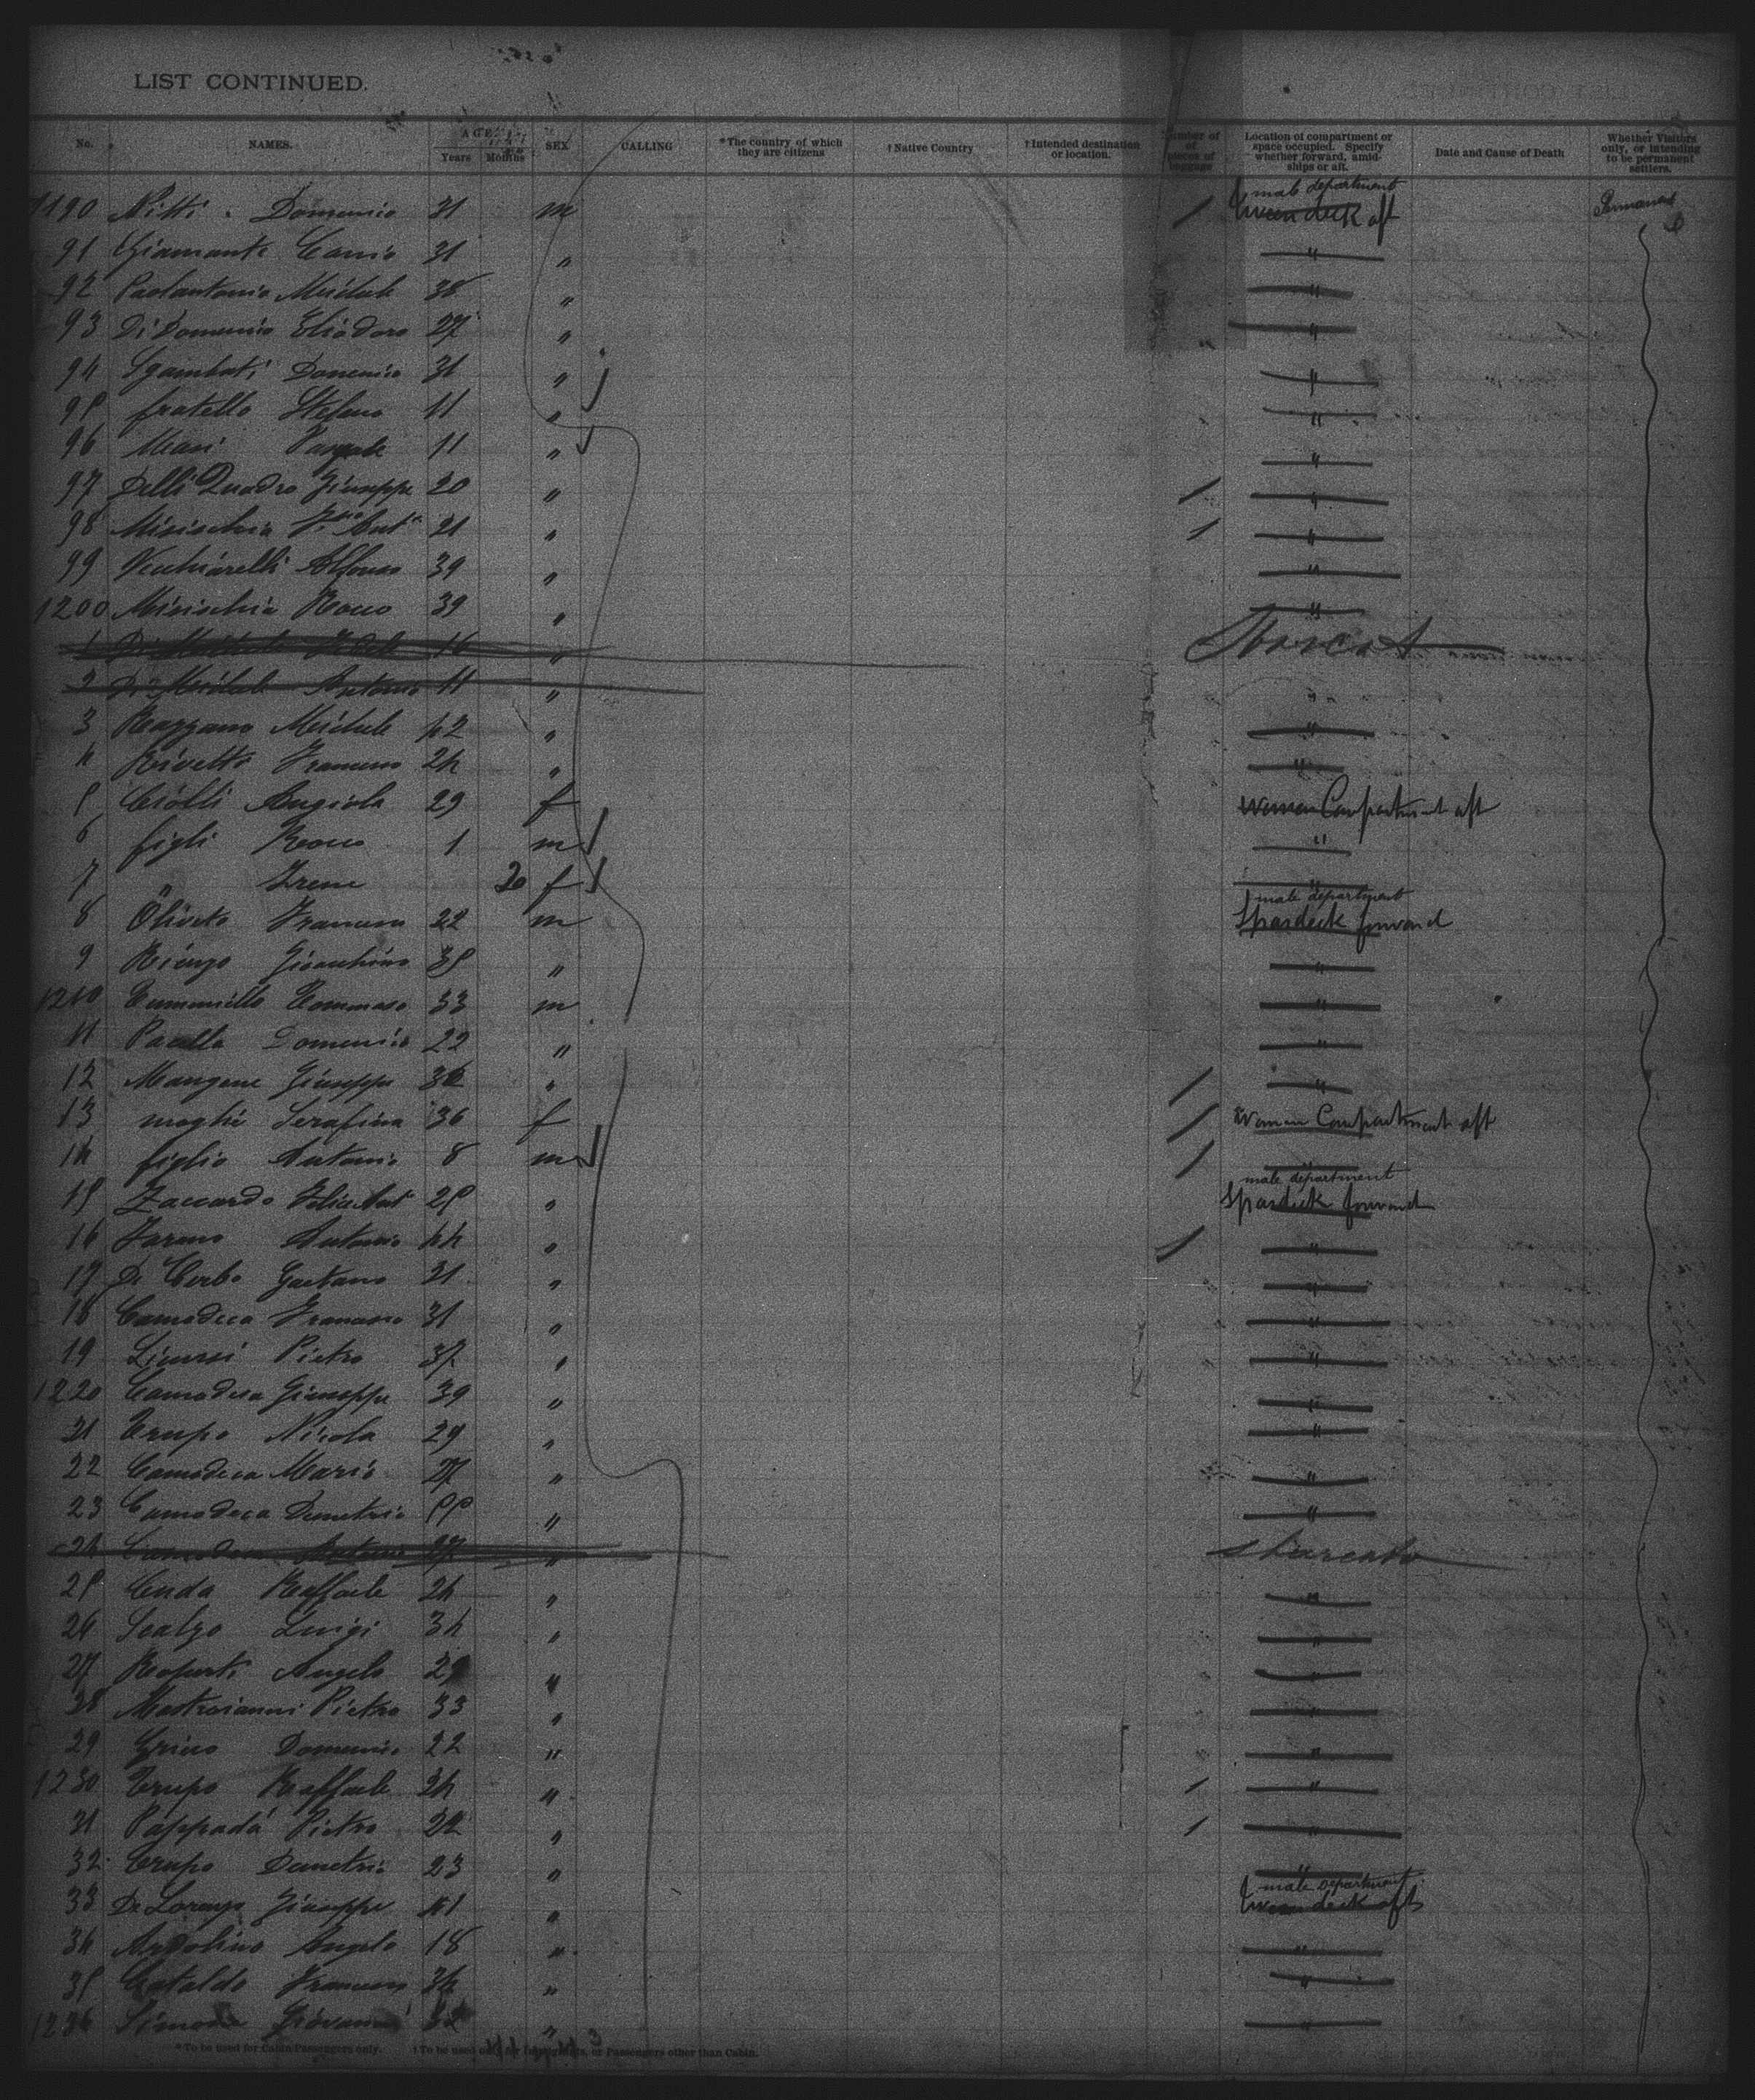 LIST CONTINUED.
No. NAMES. AGE Years Months SEX CALLING *The country of which they are citizens †Native Country †Intended destination or location. Number of pieces of baggage Location of compartment or space occupied. Specify whether forward, amidships or aft. Date and Cause of Death Whether Visitors only, or intending to be permanent settlers.
1190 Nitti Domenico 31 m / male department Tween deck aft Permanent
91 Giamante 31 " "
92 Paolantonio Michele 38 " "
93 Di Domenico Eliodoro 27 " "
94 Sgambati Domenico 31 " "
95 fratello Stefano 11 " "
96 Masi Pasquale 11 " "
97 Delli Quadro Giuseppe 20 " / "
98 Misischia Ant 21 " / "
99 Vecchiarelli Alfonso 39 " "
1200 Misischia Rocco 39 " "
1 16 "
2 Di Michele Antonio 11 " "
3 Razzano Michele 42 " "
4 Rivetti Francesco 24 " "
5 Ciolli Angiola 29 f women Compartment aft
6 figli Rocco 1 m "
7 " Irene f "
8 Oliveto Francesco 22 m male department Spardeck forward
9 Rienzo Gioacchino 35 " "
1210 Tommaso 33 m "
11 Pacella Domenico 22 " "
12 Mangone Giuseppe " / "
13 moglie Serafina 36 f / women Compartment aft
14 figlio Antonio 8 m / "
15 Zaccardo Felice Ant 25 " male department Spardeck forward
16 Antonio 44 " / "
17 De Cerbo Gaetano 31 " "
18 Camodeca Francesco 31 " "
19 Licursi Pietro 37 " "
1220 Camodeca Giuseppe 39 " "
21 Trupo Nicola 29 " "
22 Camodeca Mario 27 " "
23 Camodeca Demetrio 55 " "
24 Camodeca Antonio 27 "
25 Cuda Raffaele 24 " "
26 Scalzo Luigi 34 " "
27 Angelo " "
28 Mastroianni Pietro 33 " "
29 Grieco Domenico 22 " "
1230 Trupo Raffaele 24 " / "
31 Pappadá Pietro 22 " / "
32 Trupo Demetrio 23 " "
33 De Lorenzo Giuseppe 41 " male department Tween deck aft
34 Ardolino Angelo 18 " "
35 Cataldo Francesco 34 " "
1236 Simone Giovanni " "
*To be used for Cabin Passengers only. †To be used only for Immigrants, or Passengers other than Cabin.